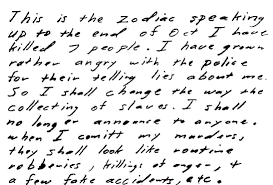 This is the zodiac speaking
up to the end of Oct I have
killed 7 people. I have grown
rather angry with the police
for their telling lies about me.
So I shall change the way the
collecting of slaves. I shall
no longer announce to anyone.
when I comitt my murders,
they shall look like routine
robberies, killings of anger, +
a few fake accidents, etc.